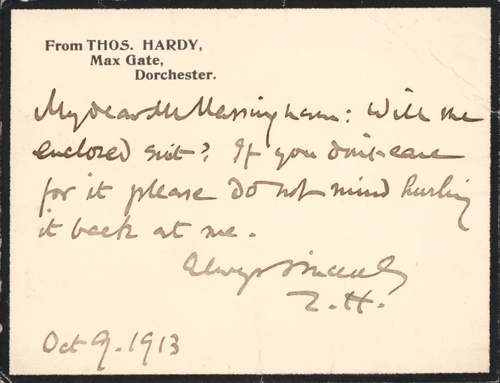 From THOS. HARDY,
Max Gate,
Dorchester.
My dear Mr Massingham: Will the
enclosed suit? If you don't care
for it please do not mind hurling
it back at me.
Always sincerely
T.H.
Oct 9. 1913